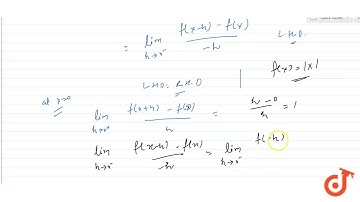 = lim h→0⁻ f(x-h) - f(x) / -h L.H.D.
L.H.D = R.H.D f(x) = |x|
at x=0
lim h→0⁺ f(x+h) - f(x) / h = h - 0 / h = 1
lim h→0⁻ f(x-h) - f(x) / -h = lim h→0⁻ f(-h)
doubtnut